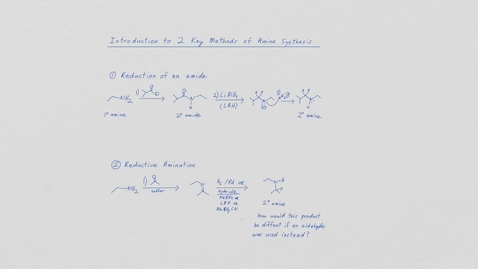 Introduction to 2 Key Methods of Amine Synthesis
① Reduction of an amide
NH2 1) 2) LiAlH4
(LAH)
1° amine 2° amide 2° amine
② Reductive Amination
1) H2 /Pd or
NH2 Hydride
NaBH4 or
LAH or
2° amine
How would this product
be different if an aldehyde
was used instead?